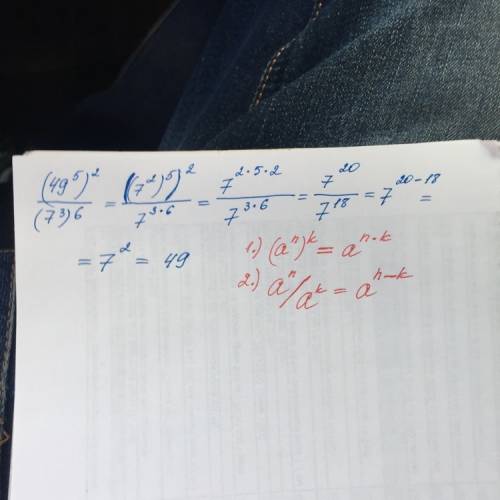 (49⁵)²/(7³)⁶ = ((7²)⁵)²/7³·⁶ = 7²·⁵·²/7³·⁶ = 7²⁰/7¹⁸ = 7²⁰⁻¹⁸ =
= 7² = 49
1.) (aⁿ)ᵏ = aⁿ·ᵏ
2.) aⁿ/aᵏ = aⁿ⁻ᵏ